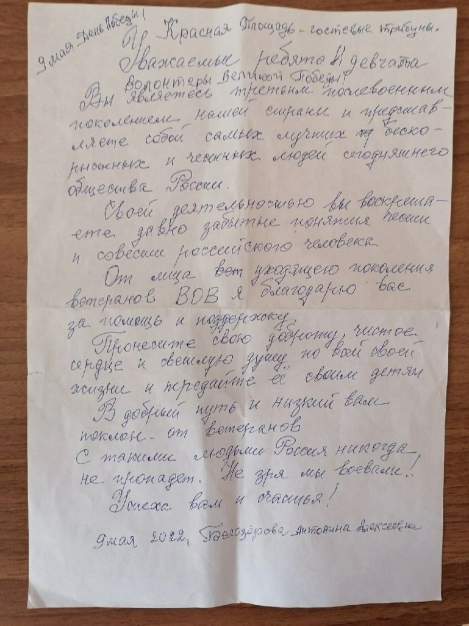 9 мая День Победы!
Красная Площадь - гостевые трибуны.
Уважаемые ребята и девчата
Волонтеры Великой Победы!
Вы являетесь третьим послевоенным
поколением нашей страны и представ-
ляете собой самых лучших беско-
рыстных и честных людей сегодняшнего
общества России.
Своей деятельностью вы воскреша-
ете давно забытые понятия чести
и совести российского человека
От лица уходящего поколения
ветеранов ВОВ я благодарю вас
за помощь и поддержку.
Пронесите свою доброту, чистое
сердце и светлую душу по всей своей
жизни и передайте её своим детям
В добрый путь и низкий вам
поклон - от ветеранов
С такими людьми Россия никогда
не пропадет. Не зря мы воевали!
Успеха вам и счастья!
9 мая 2022, Антонина Алексеевна